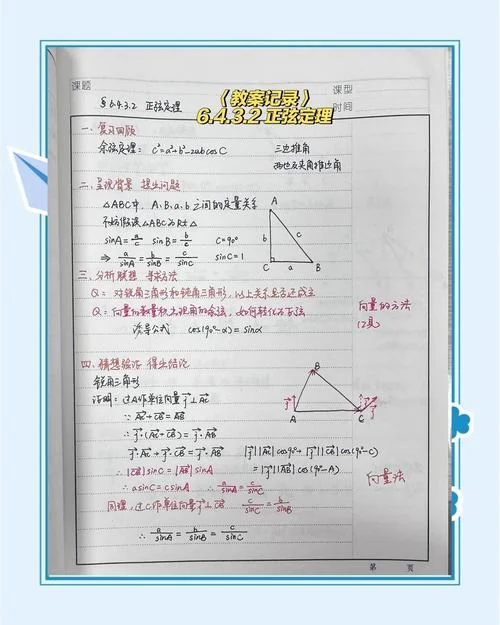 课题
课型
《教案记录》
§6.4.3.2 正弦定理
时间
6.4.3.2 正弦定理
一、复习回顾
余弦定理： c²=a²+b²-2abcosC
三边推角
两边及夹角推边角
二、呈现背景 提出问题
△ABC中，A、B、a、b之间的定量关系
不妨假设△ABC为Rt△
sinA=a/c sinB=b/c C=90°
⇒ a/sinA = b/sinB = c/sinC sinC=1
A
b
c
C
a
B
三、分析联想 寻求方法
Q：对锐角三角形和钝角三角形，以上关系是否还成立
Q：向量的数量积
如何转化为正弦
诱导公式 cos(90°-α)=sinα
向量的方法
工具
四、猜想验证 得出结论
锐角三角形
证明：过A作单位向量j⊥AC
∵ AC+CB=AB
∴ j·(AC+CB)=j·AB
j·AC+j·CB=j·AB
|j||AC|cos90°+|j||CB|cos(90°-C)
=|j||AB|cos(90°-A)
∴ |CB|sinC=|AB|sinA
∴ asinC=csinA ∴ a/sinA = c/sinC
同理，过C作单位向量j⊥CB
∴ a/sinA = b/sinB = c/sinC
B
j
A
C
j
向量法
第 页